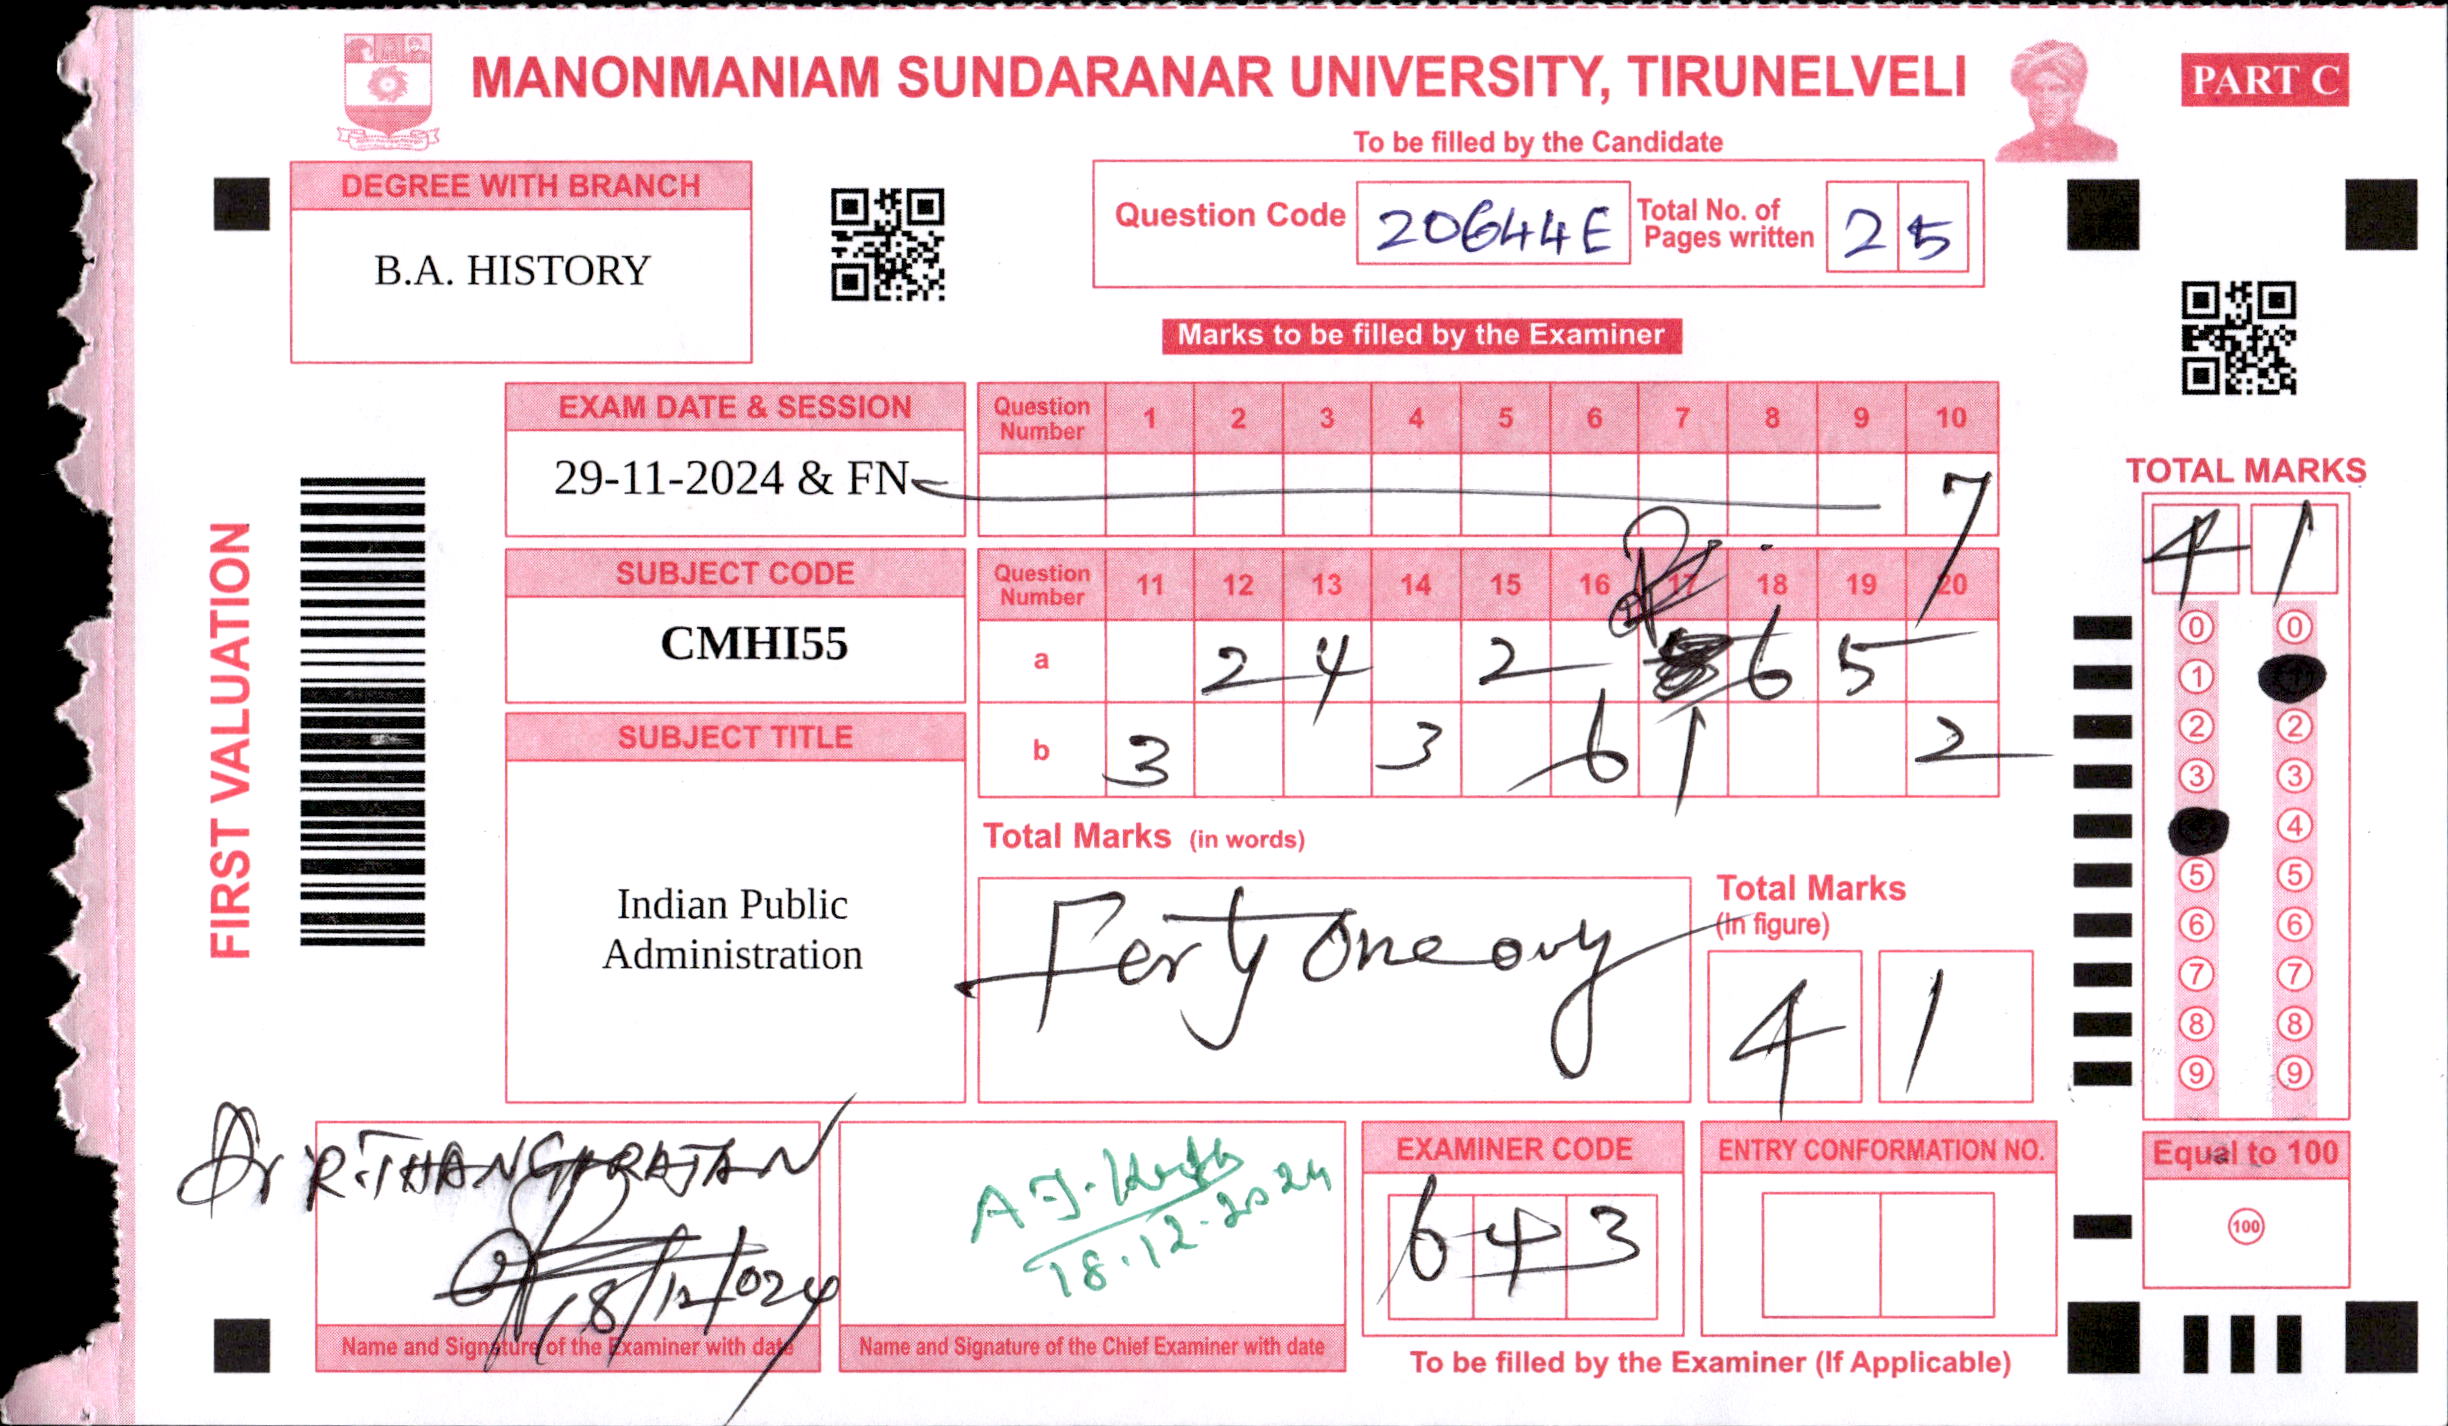 MANONMANIAM SUNDARANAR UNIVERSITY, TIRUNELVELI
PART C
To be filled by the Candidate
DEGREE WITH BRANCH
B.A. HISTORY
Question Code 20644E Total No. of Pages written 25
Marks to be filled by the Examiner
EXAM DATE & SESSION
29-11-2024 & FN
Question Number 1 2 3 4 5 6 7 8 9 10
7
SUBJECT CODE
CMHI55
Question Number 11 12 13 14 15 16 17 18 19 20
a 2 4 2 6 5
b 3 3 6 1 2
SUBJECT TITLE
Indian Public
Administration
FIRST VALUATION
Total Marks (in words)
Forty One only
Total Marks
(in figure)
4 1
TOTAL MARKS
4 1
0 0
1
2 2
3 3
4
5 5
6 6
7 7
8 8
9 9
Equal to 100
100
Dr R. THANGARAJAN
18/12/024
Name and Signature of the Examiner with date
18.12.2024
Name and Signature of the Chief Examiner with date
EXAMINER CODE
643
ENTRY CONFORMATION NO.
To be filled by the Examiner (If Applicable)